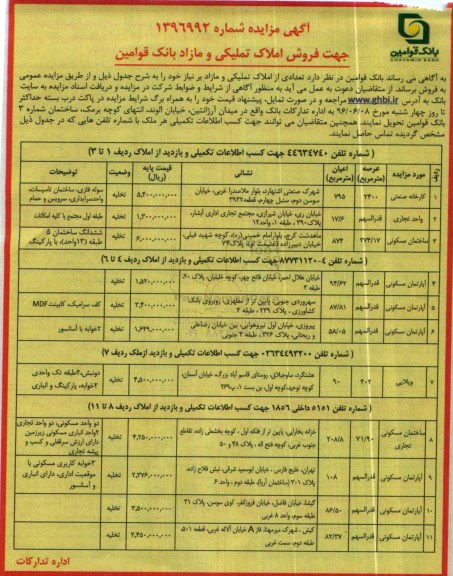 آگهی مزایده شماره ۱۳۹۶۹۹۲
جهت فروش املاک تملیکی و مازاد بانک قوامین
بانک قوامین
GHAVAMIN BANK
به آگاهی می رساند بانک قوامین در نظر دارد تعدادی از املاک تملیکی و مازاد بر نیاز خود را به شرح جدول ذیل و از طریق مزایده عمومی
به فروش برساند. از متقاضیان دعوت به عمل می آید به منظور آگاهی از شرایط و ضوابط شرکت در مزایده و دریافت اسناد مزایده به سایت
بانک به آدرس www.ghbi.ir مراجعه و در صورت تمایل، پیشنهاد قیمت خود را به همراه برگ شرایط مزایده در پاکت درب بسته حداکثر
تا روز چهار شنبه مورخ ۹۶/۰۶/۰۸ به اداره تدارکات بانک واقع در میدان آرژانتین، خیابان الوند، انتهای کوچه برمک، ساختمان شماره ۳
بانک قوامین تحویل نمایند. همچنین متقاضیان می توانند جهت کسب اطلاعات تکمیلی هر ملک با شماره تلفن هایی که در جدول ذیل
مشخص گردیده تماس حاصل نمایند.
( شماره تلفن ۴۴۶۳۴۷۴۰ جهت کسب اطلاعات تکمیلی و بازدید از املاک ردیف ۱ تا ۳ )
ردیف مورد مزایده عرصه (مترمربع) اعیان (مترمربع) نشانی قیمت پایه (ریال) وضعیت توضیحات
۱ کارخانه صنعتی ۲۴۰۰ ۷۹۵ شهرک صنعتی اشتهارد، بلوار ملاصدرا غربی، خیابان سوسن دوم، سنبل چهارم، قطعه ۳۹۳۲ ۵,۴۰۰,۰۰۰,۰۰۰ تخلیه سوله فلزی، ساختمان تاسیسات، واحدسرایداری، سرویس و حمام
۲ واحد تجاری قدرالسهم ۱۷/۶ خیابان ری، خیابان شیرازی، مجتمع تجاری اداری آبشار، پلاک ۲۹۰، طبقه ۱، واحد ۱۲ ۱,۳۰۰,۰۰۰,۰۰۰ تخلیه طبقه اول مجتمع با کلیه امکانات
۳ ساختمان مسکونی ۲۷۳/۱۷ ۸۷۴ ماهدشت کرج، بلوارامام خمینی(ره)، کوچه شهید فیلی، ۶,۰۰۰,۰۰۰,۰۰۰ تخلیه ششدانگ ساختمان ۵ طبقه (۱۳واحد)، با پارکینگ
( شماره تلفن ۴-۸۷۷۳۱۱۲۰ جهت کسب اطلاعات تکمیلی و بازدید از املاک ردیف ۴ تا ۶ )
۴ آپارتمان مسکونی قدرالسهم ۹۴/۶۲ خیابان هلال احمر، خیابان فاتح چهر، کوچه خلیلیان، پلاک ۲۰، طبقه ۳ ۱,۵۲۰,۰۰۰,۰۰۰ تخلیه
۵ آپارتمان مسکونی قدرالسهم ۸۷/۸۱ سهروردی جنوبی، پایین تر از مطهری، روبروی بانک کشاورزی، پلاک ۲۳۹، طبقه ۳ ۳,۴۰۰,۰۰۰,۰۰۰ تخلیه کف سرامیک، کابینت MDF
۶ آپارتمان مسکونی قدرالسهم ۵۸/۰۵ پیروزی، خیابان اول نیروهوایی، بین خیابان رضاعلی و ریحانی، پلاک ۳۲۶، طبقه ۳ جنوبی ۱,۶۴۹,۰۰۰,۰۰۰ تخلیه ۲خوابه با آسانسور
( شماره تلفن ۰۲۶۳۴۴۹۳۲۰۰ جهت کسب اطلاعات تکمیلی و بازدید ازملک ردیف ۷ )
۷ ویلایی ۴۰۲ ۹۰ هشتگرد، ساوجبلاغ، روستای قاسم آباد بزرگ، خیابان آسمان، کوچه توحید، کوچه اول، بن بست ۱، پ۲۶۹ ۴,۵۰۰,۰۰۰,۰۰۰ تخلیه دونبش، ۲طبقه تک واحدی ۲خوابه، پارکینگ و انباری
( شماره تلفن ۵۱۵۱ داخلی ۱۸۵۶ جهت کسب اطلاعات تکمیلی و بازدید از املاک ردیف ۸ تا ۱۱ )
۸ ساختمان مسکونی تجاری ۷۱/۹۰ ۲۰۸/۸ خزانه بخارایی، پایین تر از فلکه اول، کوچه بخشعلی زاده، تقاطع جنوب غربی، کوچه فتح اله، پلاک ۴۸ و ۵۰ ۴,۲۵۰,۰۰۰,۰۰۰ تخلیه دو واحد مسکونی، دو واحد تجاری ۲واحد انباری مسکونی زیرزمین دارای ارزش سرقفلی و کسب و پیشه تجاری
۹ آپارتمان مسکونی قدرالسهم ۱۰۸ تهران، خلیج فارس، خیابان ابوسعید شرقی، نبش فلاح زاده، پلاک ۳۰۱ (ساختمان آریا)، طبقه دوم، واحد ۶ ۲,۳۷۶,۰۰۰,۰۰۰ تخلیه ۳خوابه کاربری مسکونی با موقعیت اداری، دارای انباری و آسانسور
۱۰ آپارتمان مسکونی قدرالسهم ۸۶/۵۰ گیشا، خیابان فاضل، خیابان فروزانفر، کوی سوسن، پلاک ۳۱ طبقه سوم، واحد ۸ غربی ۳,۵۰۰,۰۰۰,۰۰۰ تخلیه
۱۱ آپارتمان مسکونی قدرالسهم ۸۲/۳۷ کیش، شهرک میرمهنا، فاز A خیابان آلاله غربی، قطعه ۵۰۱، طبقه دوم، سمت غربی ۲,۴۵۰,۰۰۰,۰۰۰ تخلیه
اداره تدارکات